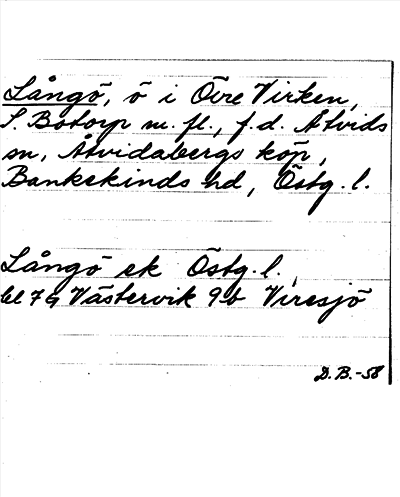 Långö, ö i Övre Virken,
S. Botorp m. fl., f.d. Åtvids
sn, Åtvidabergs köp,
Bankekinds hd, Östg. l.
Långö ek Östg. l.
bl 7 G Västervik 9 b Viresjö
D. B. -58